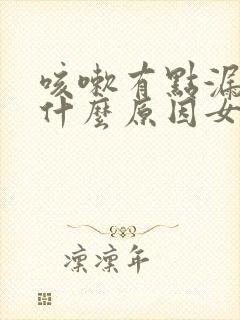 咳嗽有點漏
什麼原因女
凜凜年